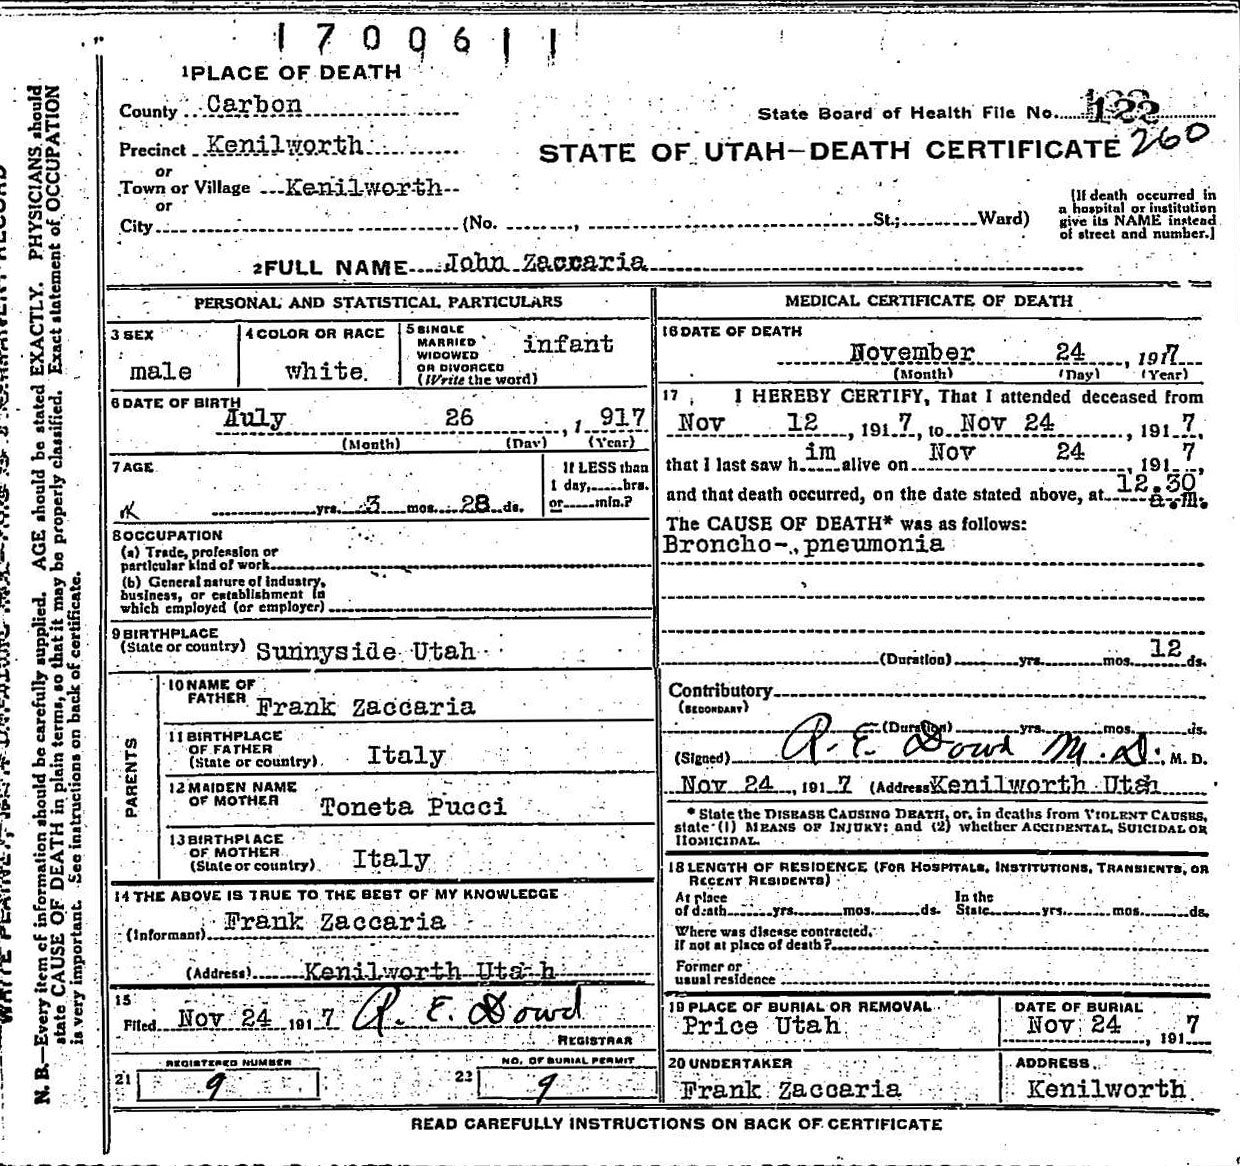 1700611
1PLACE OF DEATH
County Carbon
State Board of Health File No. 122
Precinct Kenilworth
STATE OF UTAH-DEATH CERTIFICATE 260
or
Town or Village Kenilworth
or
City (No. , St.; Ward)
[If death occurred in
a hospital or institution
give its NAME instead
of street and number.]
2FULL NAME John Zaccaria
PERSONAL AND STATISTICAL PARTICULARS
3 SEX
male
4 COLOR OR RACE
white
5 SINGLE
MARRIED
WIDOWED
OR DIVORCED
(Write the word)
infant
6 DATE OF BIRTH
July 26, 1917
(Month) (Day) (Year)
7 AGE
yrs. 3 mos. 28 ds.
If LESS than
1 day, hrs.
or min.?
8 OCCUPATION
(a) Trade, profession or
particular kind of work
(b) General nature of industry,
business, or establishment in
which employed (or employer)
9 BIRTHPLACE
(State or country) Sunnyside Utah
PARENTS
10 NAME OF
FATHER Frank Zaccaria
11 BIRTHPLACE
OF FATHER
(State or country). Italy
12 MAIDEN NAME
OF MOTHER Toneta Pucci
13 BIRTHPLACE
OF MOTHER
(State or country) Italy
14 THE ABOVE IS TRUE TO THE BEST OF MY KNOWLEDGE
(Informant) Frank Zaccaria
(Address) Kenilworth Utah
15
Filed Nov 24 1917 R. E. Dowd
REGISTRAR
REGISTERED NUMBER
21 9
NO. OF BURIAL PERMIT
22 9
MEDICAL CERTIFICATE OF DEATH
16 DATE OF DEATH
November 24, 1917
(Month) (Day) (Year)
17 I HEREBY CERTIFY, That I attended deceased from
Nov 12, 1917, to Nov 24, 1917,
that I last saw him alive on Nov 24, 1917,
and that death occurred, on the date stated above, at 12.30 a.m.
The CAUSE OF DEATH* was as follows:
Broncho-pneumonia
(Duration) yrs. mos. 12 ds.
Contributory
(SECONDARY)
(Duration) yrs. mos. ds.
(Signed) R. E. Dowd M.D., M. D.
Nov 24, 1917 (Address Kenilworth Utah
* State the DISEASE CAUSING DEATH, or, in deaths from VIOLENT CAUSES,
state (1) MEANS OF INJURY; and (2) whether ACCIDENTAL, SUICIDAL OR
HOMICIDAL.
18 LENGTH OF RESIDENCE (FOR HOSPITALS, INSTITUTIONS, TRANSIENTS, OR
RECENT RESIDENTS)
At place
of death yrs. mos. ds.
In the
State yrs. mos. ds.
Where was disease contracted,
If not at place of death?
Former or
usual residence
19 PLACE OF BURIAL OR REMOVAL
Price Utah
DATE OF BURIAL
Nov 24, 1917
20 UNDERTAKER
Frank Zaccaria
ADDRESS
Kenilworth
READ CAREFULLY INSTRUCTIONS ON BACK OF CERTIFICATE
N. B.—Every item of information should be carefully supplied. AGE should be stated EXACTLY. PHYSICIANS should
state CAUSE OF DEATH in plain terms, so that it may be properly classified. Exact statement of OCCUPATION
is very important. See instructions on back of certificate.